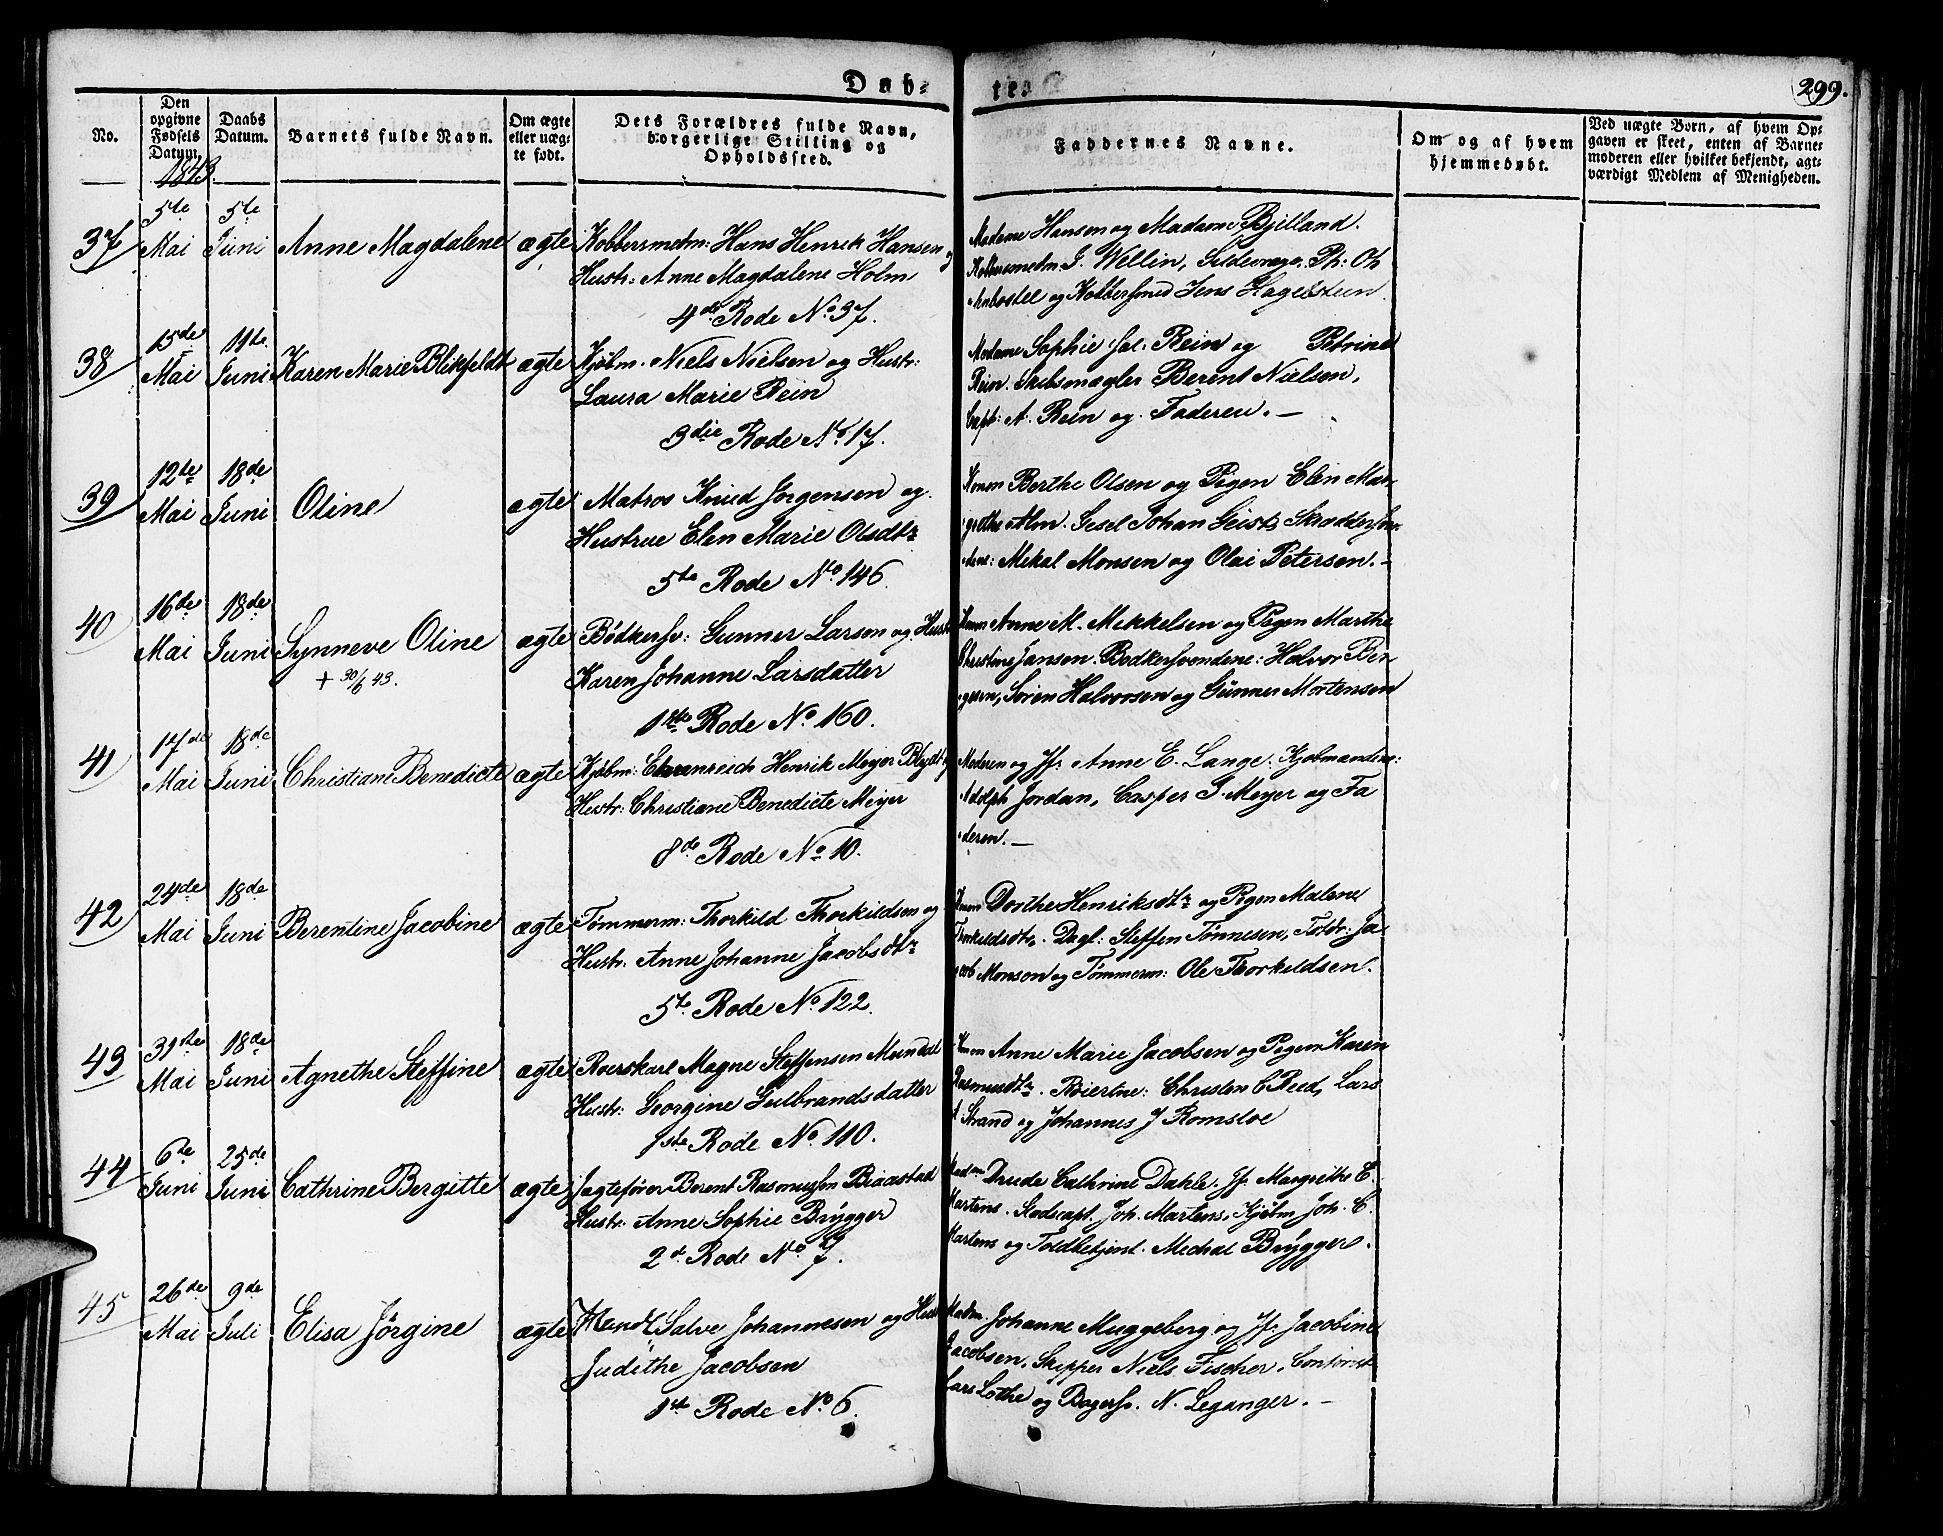 Døb-
te.
299.
No.
Den opgivne Fødsels Datum.
Daabs Datum.
Barnets fulde Navn.
Om ægte eller uæg-te født.
Dets Forældres fulde Navn, borgerlige Stilling og Opholdssted.
Faddernes Navne.
Om og af hvem hjemmedøbt.
Ved uægte Børn, af hvem Op-gaven er skeet, enten af Barne-moderen eller hvilket bekjendt, agt-værdigt Medlem af Menigheden.
1843.
37 5te Mai 5te Juni Anne Magdalene ægte
Kobbersmedm: Hans Henrik Hansen og
Hustr: Anne Magdalene Holm
4de Rode No 37.
Madame Hansen og Madame Bjelland.
Kobbersmedm. G. Wellin, Sildevrager Ph: Oh
og Kobbersmed Jens Hagelsteen.
38 15de Mai 11te Juni Karen Marie Blikfeldt ægte
Kjøbm. Niels Nielsen og Hustr:
Laura Marie Rein
3die Rode No 17.
Madame Sophie sal: Rein og Petrine
Rein. Skibsmægler Berent Nielsen,
Capt: A. Rein og Faderen.—
39 12te Mai 18de Juni Oline ægte
Matros Knud Jørgensen og
Hustrue Elen Marie Olsdtr
5te Rode No 146.
Konen Berthe Olsen og Pigen Elen Mar-
grethe Alm. Gesel Johan Geist, Skrædder
Mekal Monsen og Olai Petersen.—
40 16de Mai 18de Juni Synneve Oline ægte
+ 30/6 43.
Bødkersv: Gunner Larsen og Hust
Karen Johanne Larsdatter
1ste Rode No 160.
Konen Anne M. Mikkelsen og Pigen Marthe
Christine Jansen. Bødkersvendene: Halvor Ber-
gesen, Søren Halvorsen og Günner Mortensen
41 17de Mai 18de Juni Christiane Benedicte ægte
Kjøbm: Ehrenreich Henrik Meyer Blydt og
Hustr: Christiane Benedicte Meyer
8de Rode No 10.
Moderen og Jfr Anne E. Lange. Kjøbmændene:
Adolph Jordan, Casper J. Meyer og Fa
deren.—
42 24de Mai 18de Juni Berentine Jacobine ægte
Tømmerm: Thorkild Thorkildsen og
Hustr: Anne Johanne Jacobsdtr
5te Rode No 122.
Konen Dorthe Henriksdtr og Pigen Malene
Thorkildsdtr. Dagl: Steffen Tønnesen, Toldr: Ja-
cob Monsen og Tømmerm: Ole Thorkildsen.
43 31te Mai 18de Juni Agnethe Steffine ægte
Roerskarl Magne Steffensen Mundal
Hustr: Georgine Gulbrandsdatter
1ste Rode No 110.
Konen Anne Marie Jacobsen og Pigen Karen
Rasmusdtr. Røierne: Christen C Reed, Lars
A Strand og Johannes J Romsloe
44 6te Juni 25de Juni Cathrine Bergitte ægte
Jagtefører Berent Rasmussen Biaastad
Hustr: Anne Sophie Brÿgger
2d Rode No 7.
Madm Drude Cathrine Dahle. Jfr Margrethe E.
Martens. Stadscapt. Joh. Martens, Kjøbm Joh. C.
Martens og Toldbetjent. Mechal Brÿgger.
45 26de Mai 9de Juli Elisa Jørgine ægte
Handl Salve Johannesen og Hust
Judithe Jacobsen
1ste Rode No 6.
Madm Johanne Muggeberg og Jfr Jacobine
Jacobsen. Skipper Niels Fischer, Contorist
Lars Lothe og Bagersv. N. Leganger.—